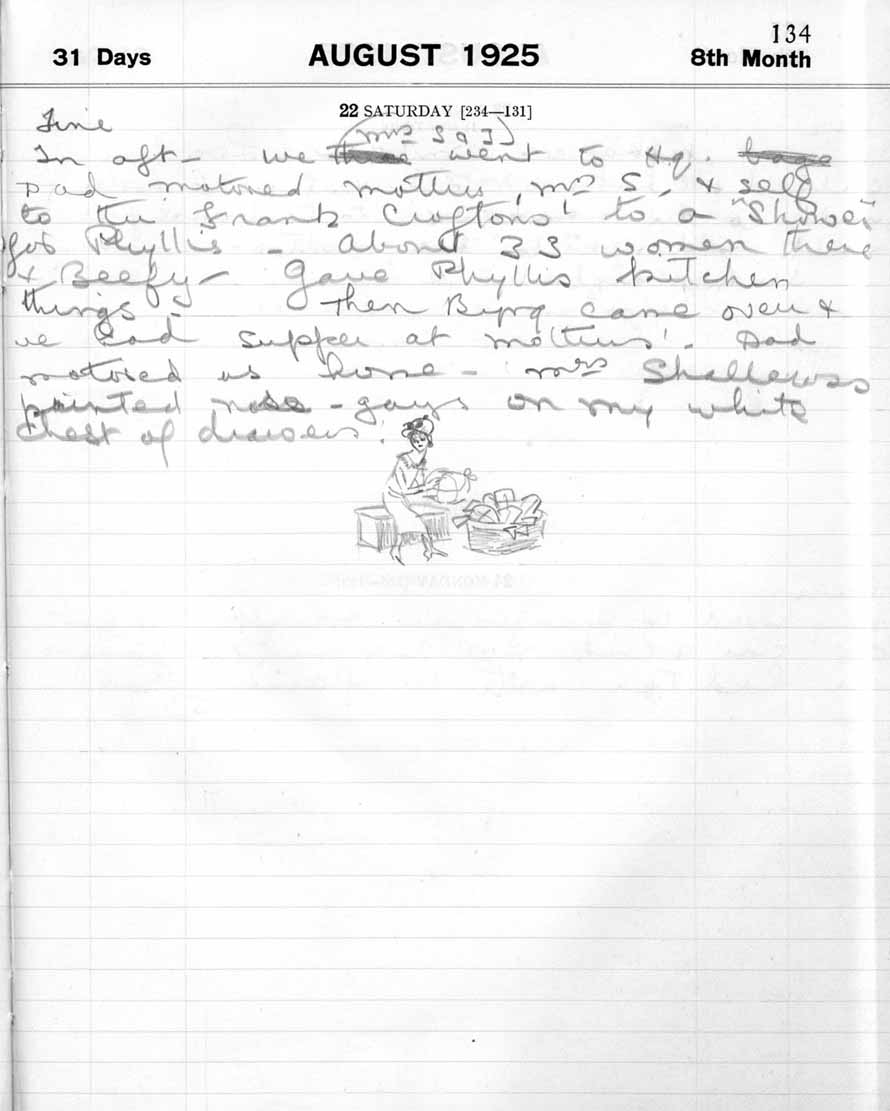 134
31 Days AUGUST 1925 8th Month
22 SATURDAY [234—131]
Fine
(Mrs S & I)
In aft - we went to Hq.
Dad motored mother, Mrs S, & self
to the Frank Croftons' to a "Shower"
for Phyllis - About 33 women there
& Beefy - Gave Phyllis kitchen
things - Then Byng came over &
we had supper at mothers' - Dad
motored us home - Mrs Shallewss
painted nose-gays on my white
chest of drawers!